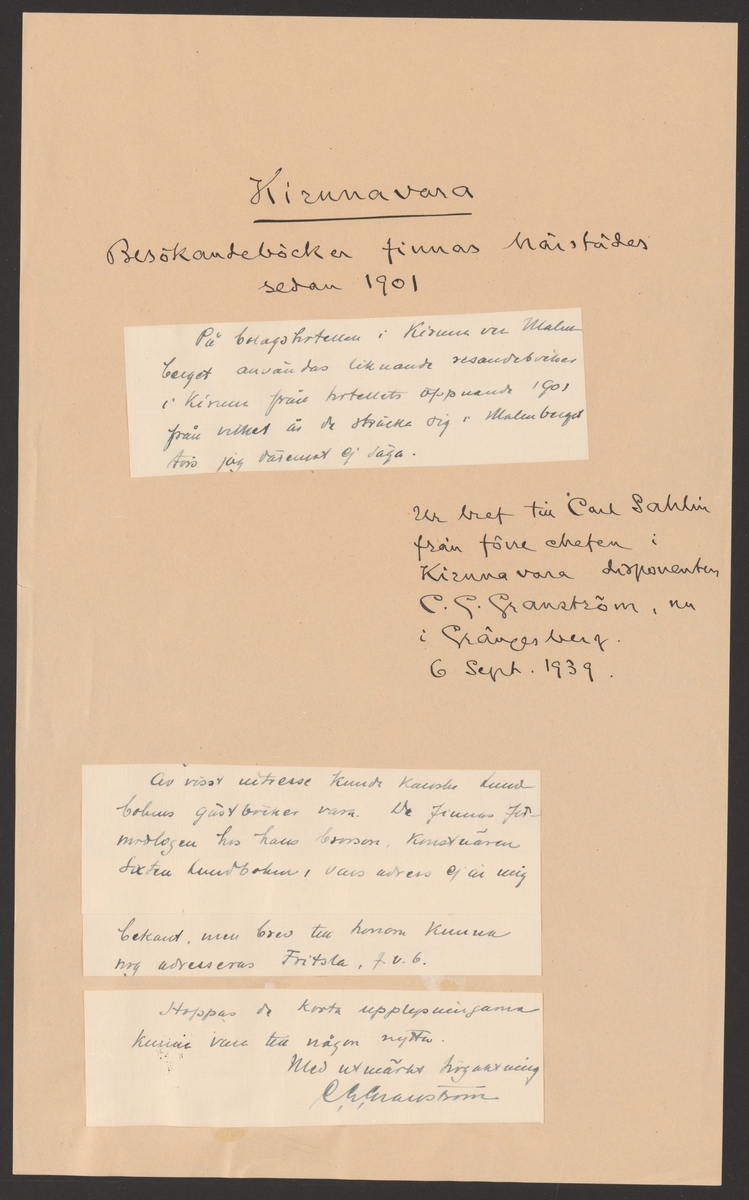 Kirunavara
Besökandeböcker finnas härstädes
sedan 1901
På bolagshotellen i Kiruna och Malm
berget användas liknande resandeböcker
i Kiruna från hotellets öppnande 1901
från vilket år de sträcka sig i Malmberget
törs jag däremot ej säga.
Ur bref till Carl Sahlin
från förre chefen i
Kirunavara disponenten
C. G. Granström, nu
i Grängesberg.
6 Sept. 1939.
Av visst intresse kunde kanske Lund
bohms gästböcker vara. De finnas för-
modligen hos hans brorson, konstnären
Sixten Lundbohm, vars adress ej är mig
bekant, men brev till honom kunna
nog adresseras Fritsla, f.v.b.
Hoppas de korta upplysningarna
kunna vara till någon nytta.
Med utmärkt högaktning
C G Granström